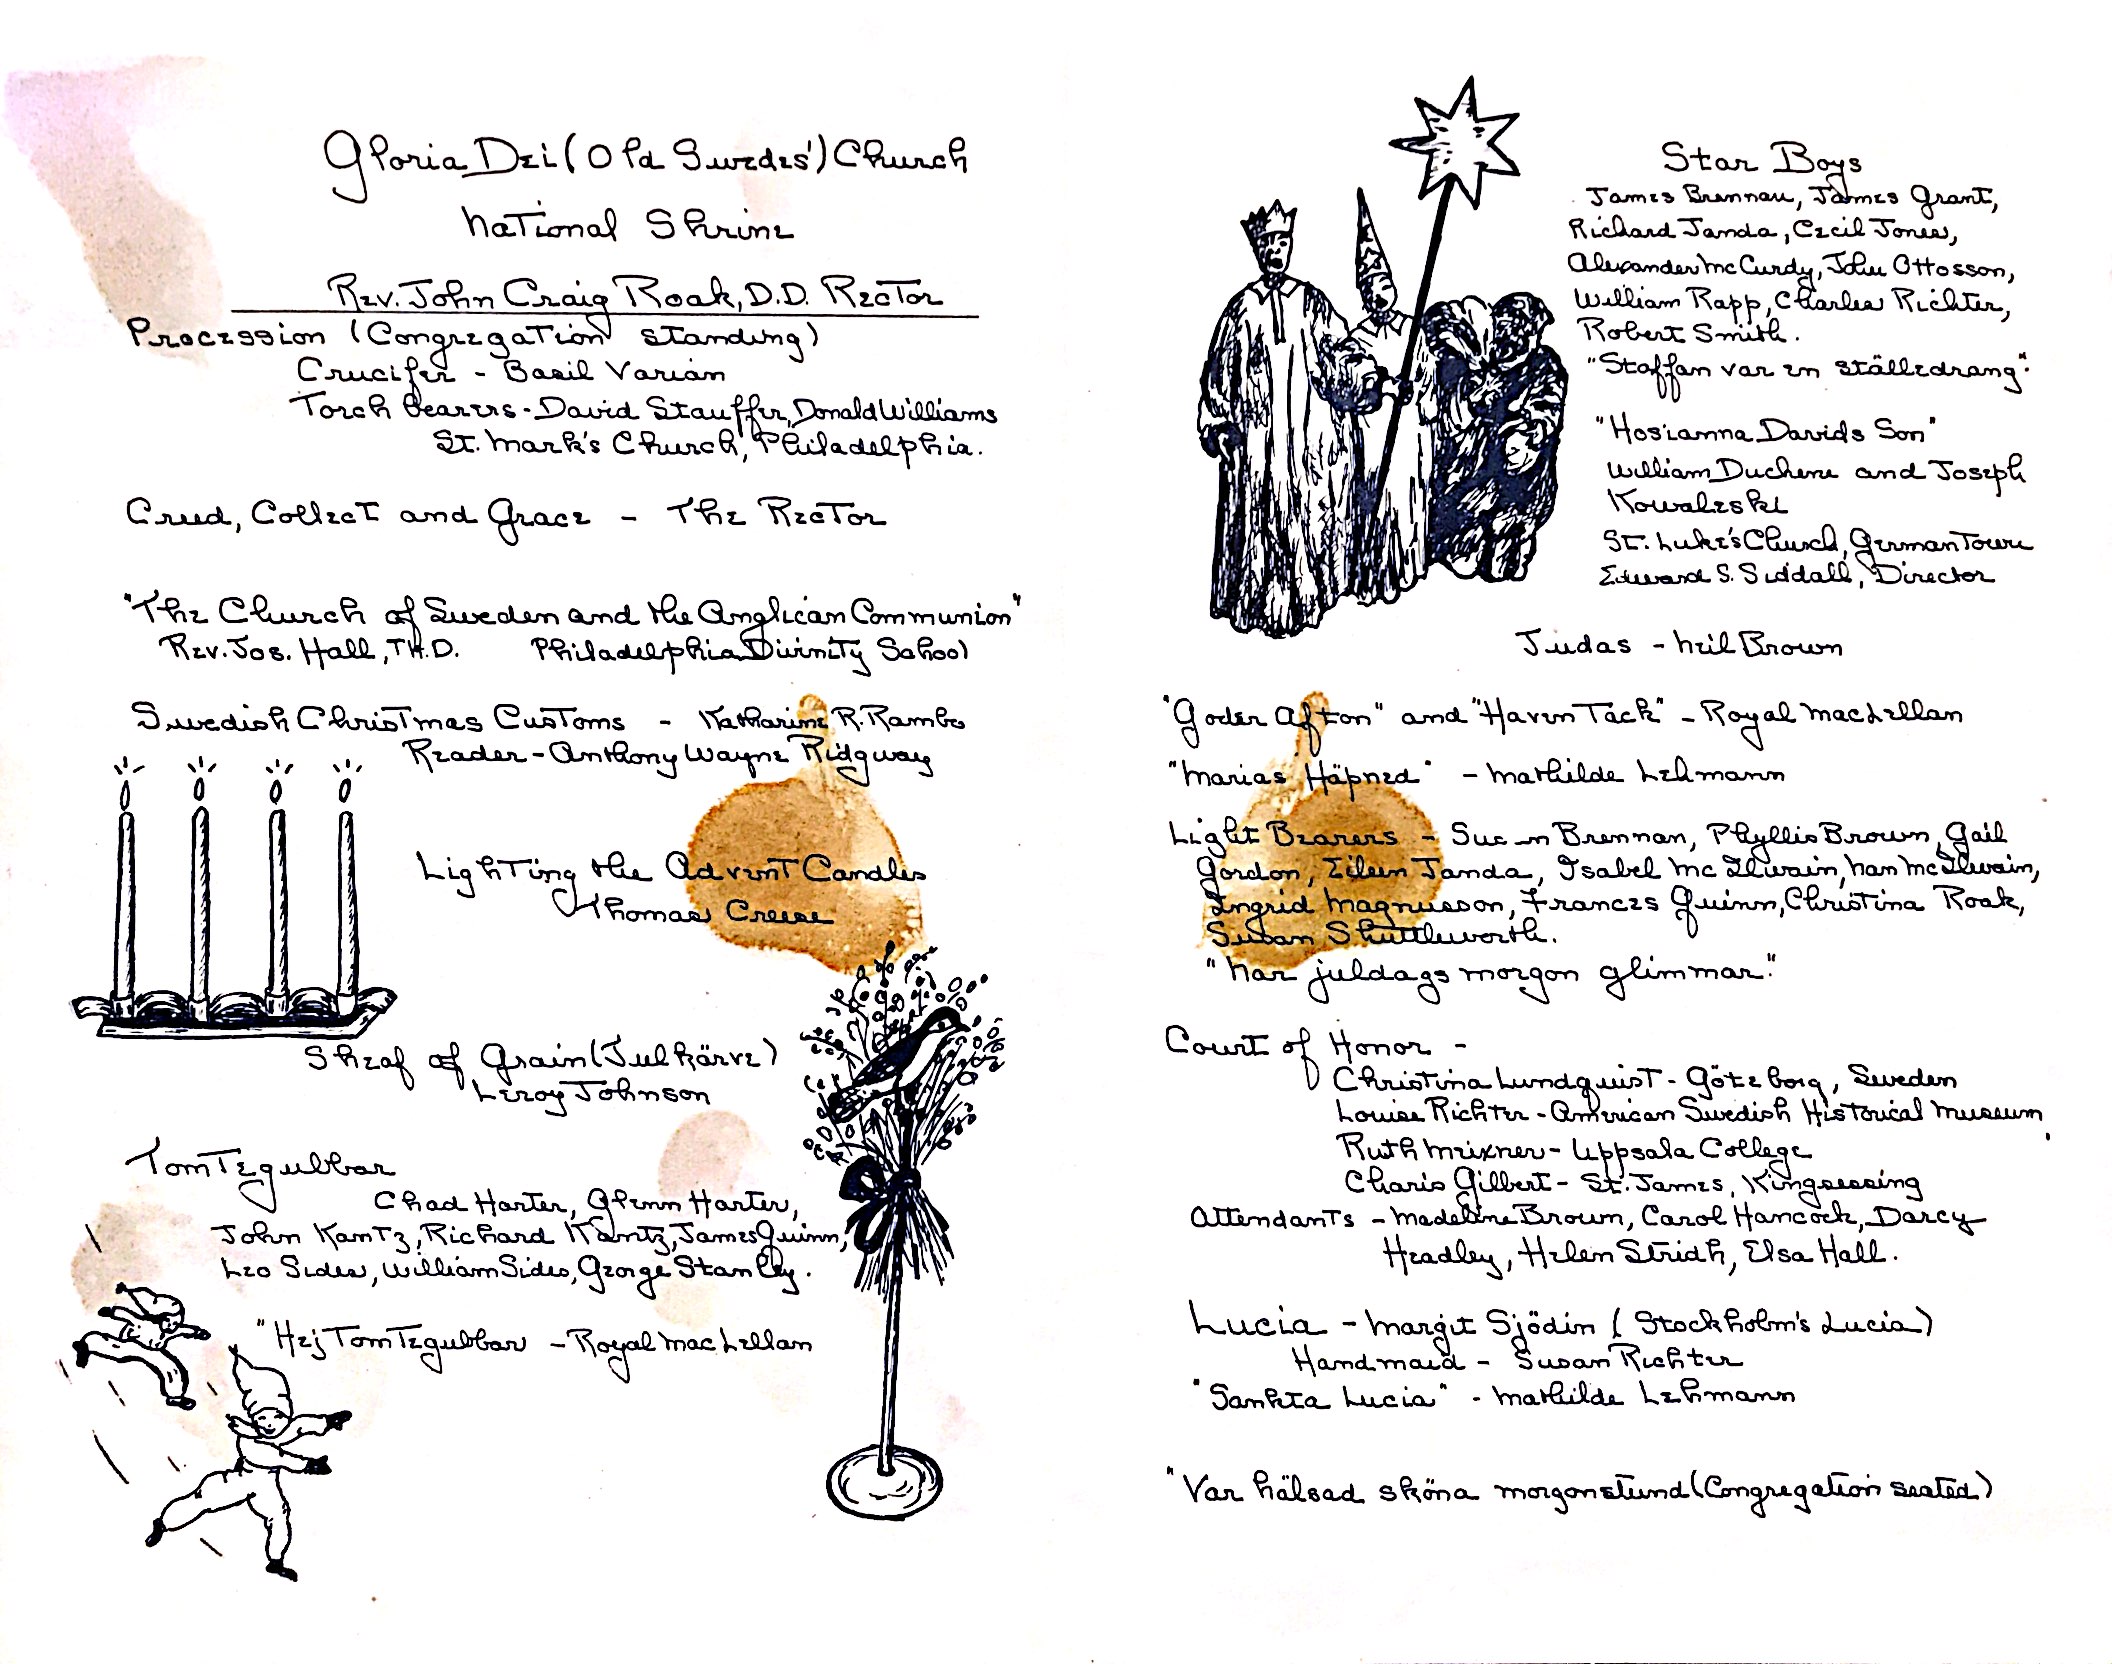 Gloria Dei (Old Swedes') Church
National Shrine
Rev. John Craig Roak, D.D. Rector
Procession (Congregation standing)
Crucifer - Basil Varian
Torch bearers - David Stauffer, Donald Williams
St. Mark's Church, Philadelphia.
Creed, Collect and Grace - The Rector
"The Church of Sweden and the Anglican Communion"
Rev. Jos. Hall, TH.D. Philadelphia Divinity School
Swedish Christmas Customs - Katharine R. Rambo
Reader - Anthony Wayne Ridgway
Lighting the Advent Candles
Thomas Creese
Sheaf of Grain (Julkärve)
Leroy Johnson
Tomtegubbar
Chad Harter, Glenn Harter,
John Kantz, Richard Kantz, James Quinn,
Leo Sides, William Sides, George Stanley.
"Hej Tomtegubbar - Royal MacLellan
Star Boys
James Brennan, James Grant,
Richard Janda, Cecil Jones,
Alexander McCurdy, John Ottosson,
William Rapp, Charles Richter,
Robert Smith.
"Staffan var en ställedrang".
"Hosianna Davids Son"
William Duchene and Joseph
Kowaleski
St. Luke's Church, Germantown
Edward S. Siddall, Director
Judas - Neil Brown
"Goder Afton" and "Haven Tack" - Royal MacLellan
"Marias Häpned" - Mathilde Lehmann
Light Bearers - Brennan, Phyllis Brown, Gail
Gordon, Eileen Janda, Isabel McIlwain, Nan McIlwain,
Ingrid Magnusson, Frances Quinn, Christina Roak,
Susan Shuttleworth.
"Nar juldags morgon glimmar".
Court of Honor -
Christina Lundquist - Göteborg, Sweden
Louise Richter - American Swedish Historical Museum
Ruth Meixner - Uppsala College
Charis Gilbert - St. James, Kingsessing
Attendants - Madeline Brown, Carol Hancock, Darcy
Headley, Helen Stridh, Elsa Hall.
Lucia - Margit Sjödin (Stockholm's Lucia)
Handmaid - Susan Richter
"Sankta Lucia" - Mathilde Lehmann
"Var hälsad sköna morgonstund (Congregation seated)